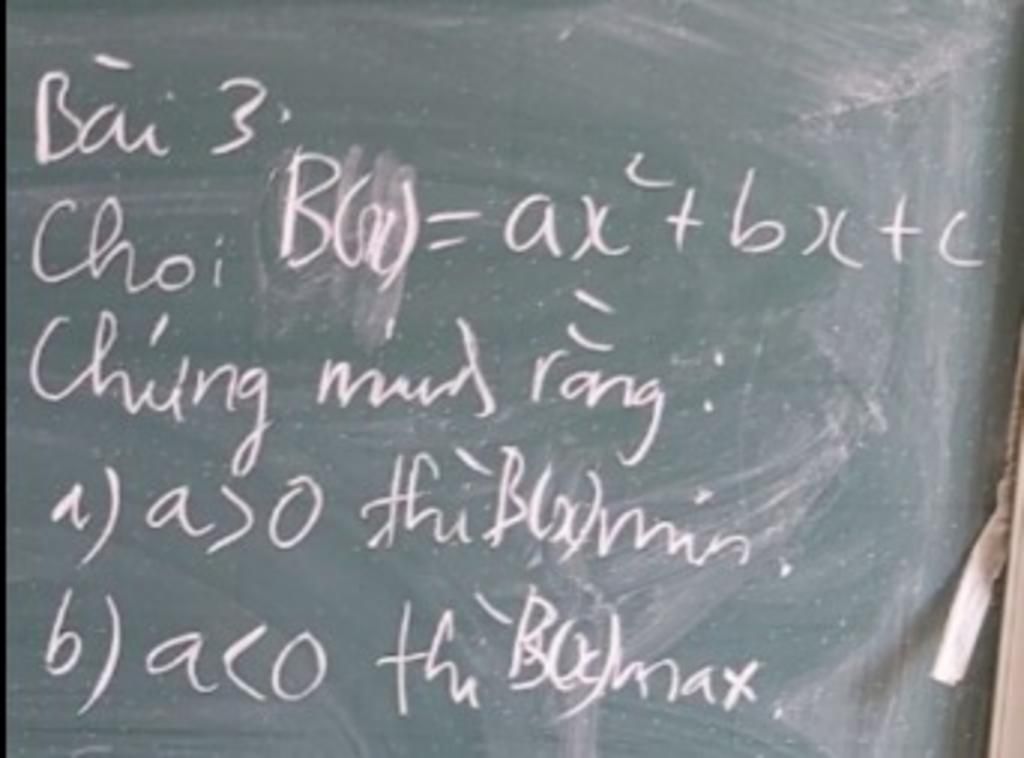 Bài 3:
Cho: B(x) = ax² + bx + c
Chứng minh rằng:
a) a > 0 thì B(x) min.
b) a < 0 thì B(x) max.